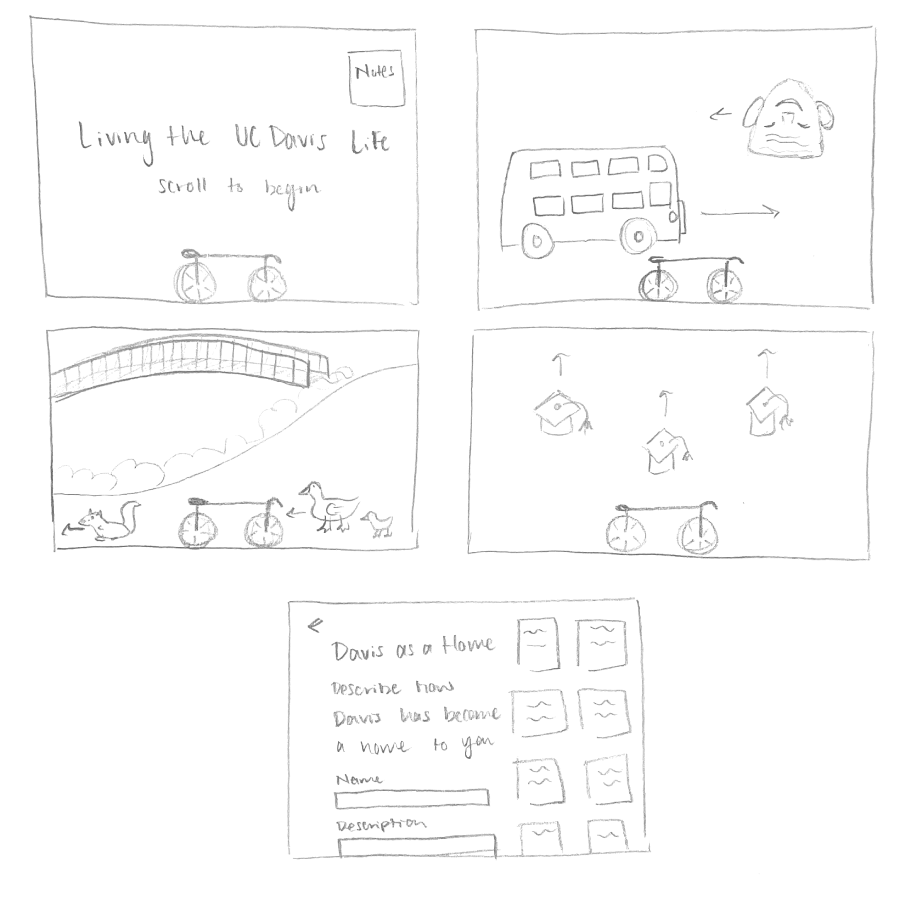 Notes
Living the UC Davis Life
scroll to begin
Davis as a Home
Describe how
Davis has become
a home to you
Name
Description